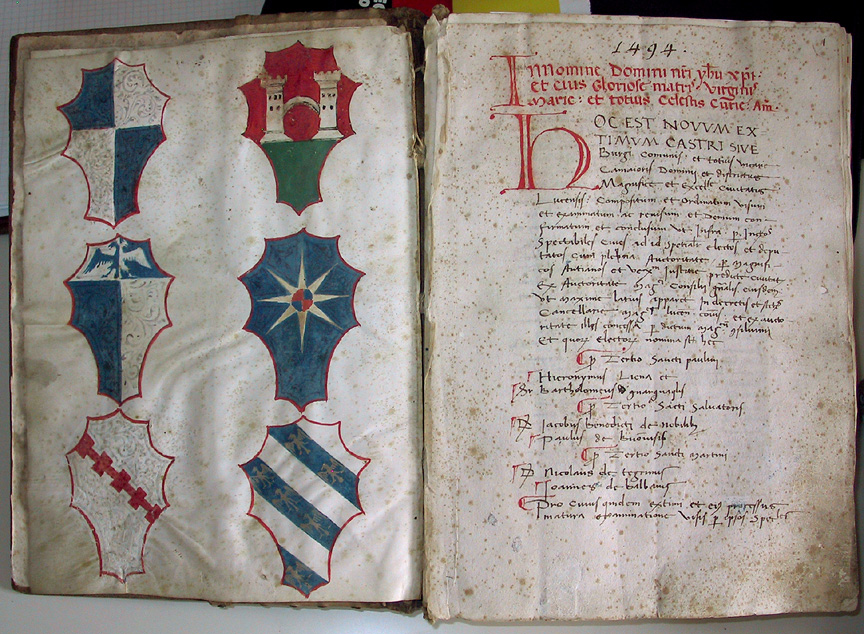 1494.
In nomine Domini nri yhu xpi.
et eius Gloriose matris Virginis
Marie: et totius Celestis Curie: Am.
HOC EST NOVUM EX-
TIMUM CASTRI SIVE
Burgi Comunis: et totius vicarie
Camaioris Domini et districtus
Magnifice et Excelse Civitatis
Lucensis: Compositum et Ordinatum Visum
et examinatum ac revisum et Demum con-
firmatum et conclusum Vt Infra: p. Infros
Spectabiles Cives ad id spetialr electos et depu-
tatos Cum plenaria Auctoritate p. Magnifi-
cos Antianos et Vex Iustitie predicte Civitat
Ex Auctoritate Mag Consilij gnalis eiusdem
Vt maxime latius apparet In decretis et
Cancellarie mag lucen comis: et ex aucto-
ritate illis concessa p. dictum mag
Et quor Elector nomina st hec
p Tertio Sancti paulini
Hieronymus Liena et
Bartholomeus
p Tertio Sacti Salvatoris
D Iacobus Benedicti de Nobilib
Paulus de
p Tertio Sancti Martini
D Nicolaus de tegrimis
Ioannes de balbanis
Pro Cuius quidem extimi et eius processus
matura examinatione Visis p ipsos Spect